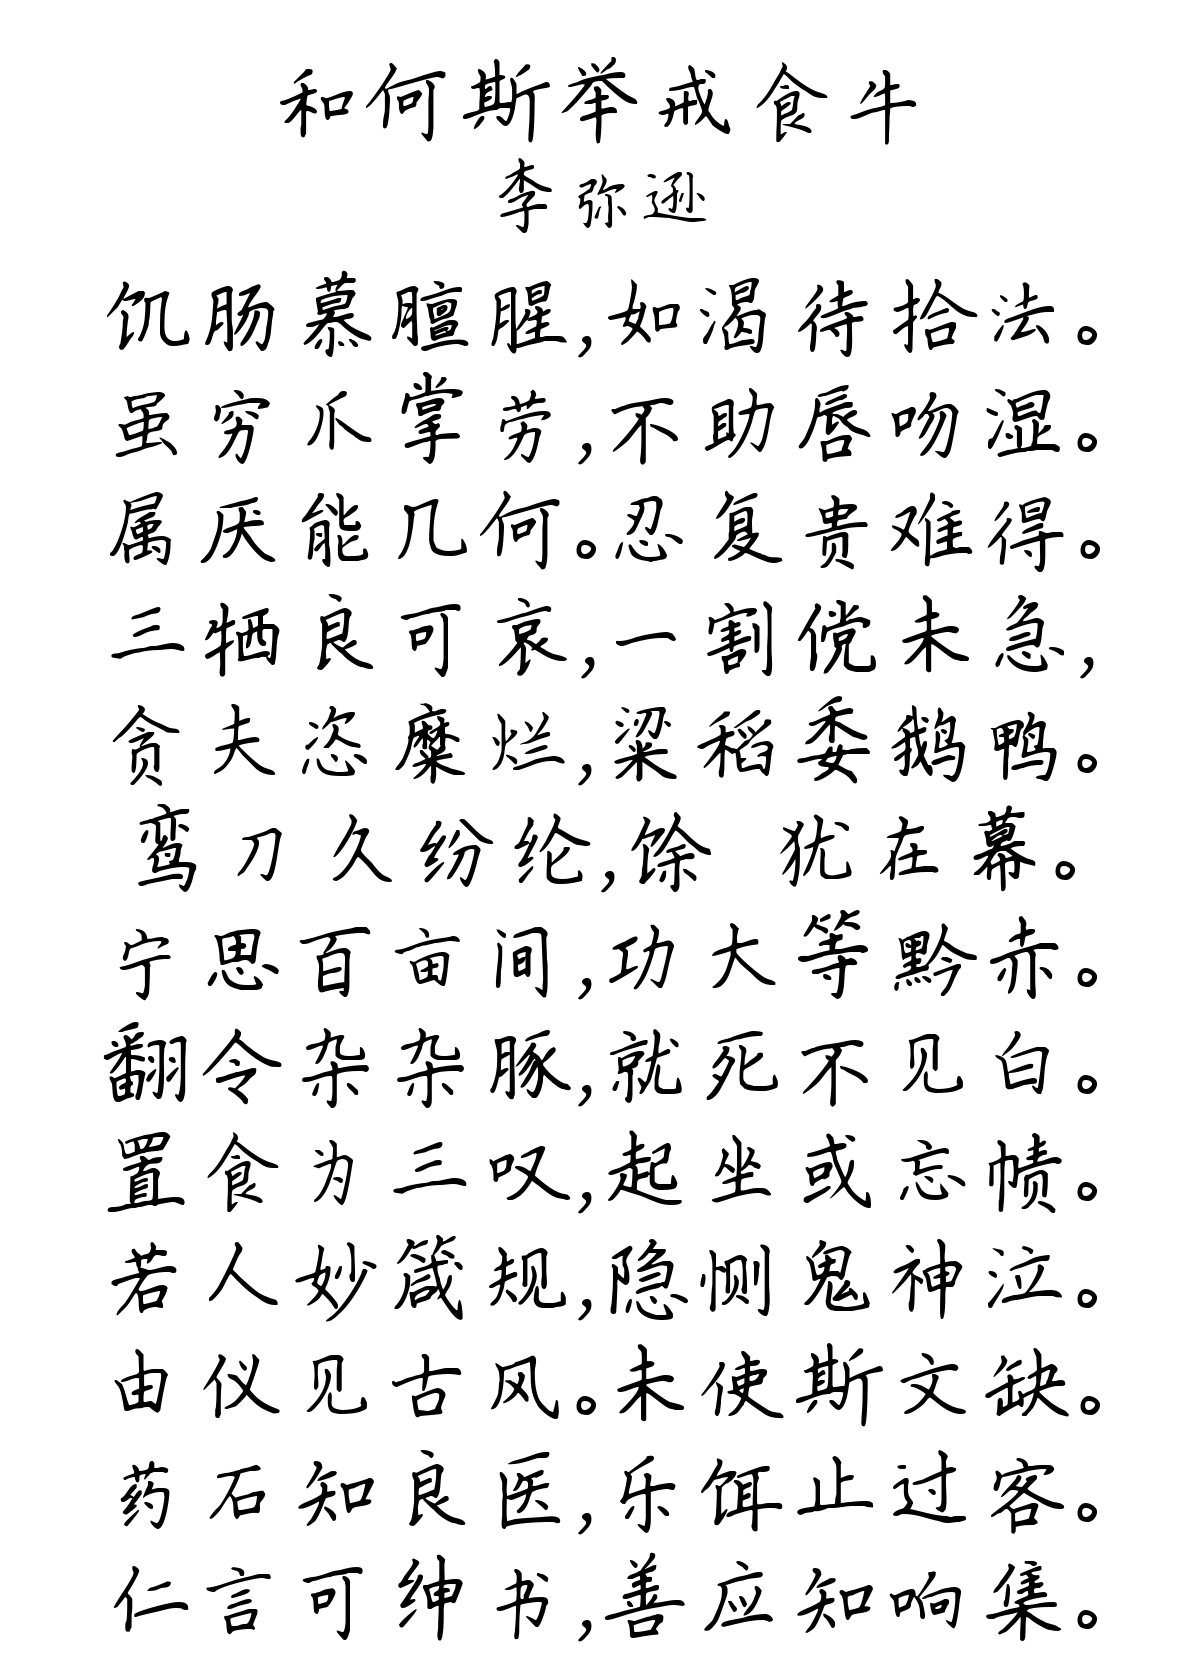 和何斯举戒食牛
李弥逊
饥肠慕膻腥,如渴待拾法。
虽穷爪掌劳,不助唇吻湿。
属厌能几何。忍复贵难得。
三牺良可哀,一割傥未急,
贪夫恣糜烂,粱稻委鹅鸭。
鸾刀久纷纶,馀 犹在幕。
宁思百亩间,功大等黔赤。
翻令杂杂豚,就死不见白。
置食为三叹,起坐或忘帻。
若人妙箴规,隐恻鬼神泣。
由仪见古风。未使斯文缺。
药石知良医,乐饵止过客。
仁言可绅书,善应知响集。